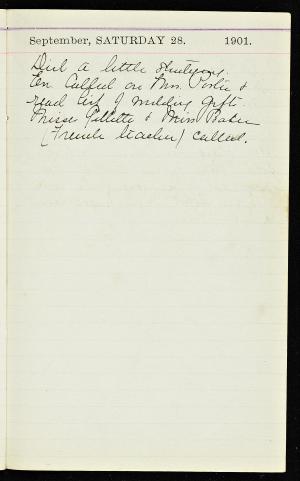 September, SATURDAY 28. 1901.
Did a little studying.
Ev. Called on Mrs. &
read list of wedding gifts.
Misses Gillette & Miss Baker
(French teacher) called.